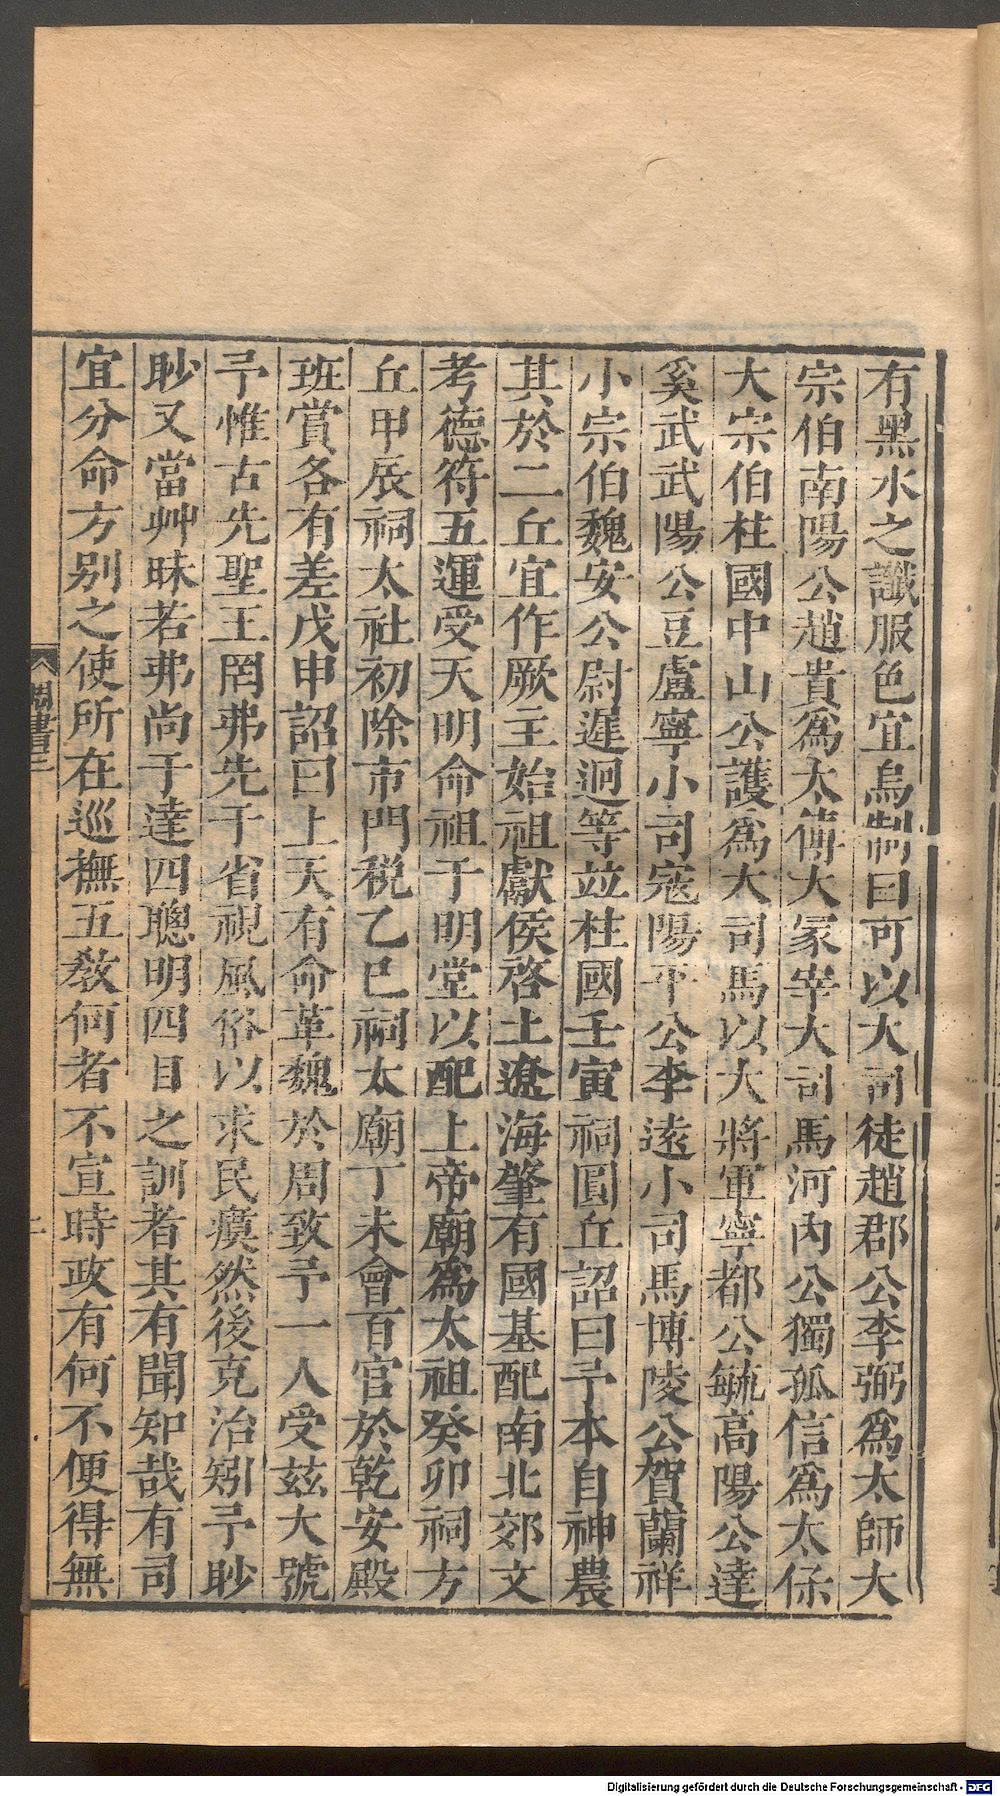 有黑水之讖服色宜烏制曰可以大司徒趙郡公李弼爲太師大
宗伯南陽公趙貴爲太傅大冢宰大司馬河內公獨孤信爲太保
大宗伯柱國中山公護爲大司馬以大將軍寧都公毓高陽公達
奚武武陽公豆盧寧小司寇陽平公李遠小司馬博陵公賀蘭祥
小宗伯魏安公尉遲迥等竝柱國壬寅祠圓丘詔曰予本自神農
其於二丘宜作厥主始祖獻侯啓土遼海肇有國基配南北郊文
考德符五運受天明命祖于明堂以配上帝廟爲太祖癸卯祠方
丘甲辰祠太社初除市門稅乙巳祠太廟丁未會百官於乾安殿
班賞各有差戊申詔曰上天有命革魏於周致予一人受茲大號
予惟古先聖王罔弗先于省視風俗以求民瘼然後克治矧予眇
眇又當艸昧若弗尚于達四聰明四目之訓者其有聞知哉有司
宜分命方别之使所在巡撫五教何者不宣時政有何不便得無
周書三
二
Digitalisierung gefördert durch die Deutsche Forschungsgemeinschaft - DFG